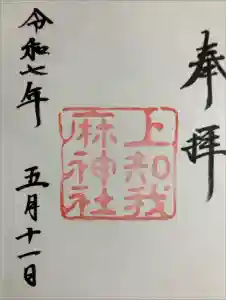 奉拝
上知我
麻神社
令和七年
五月十一日